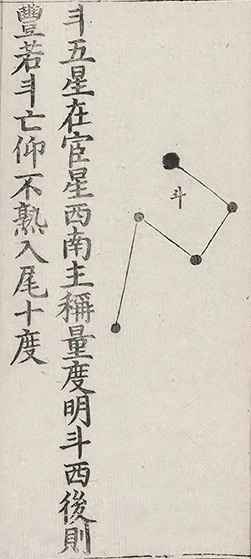 斗
斗五星在宦星西南主稱量度明斗西後則
豐若斗亡仰不熟入尾十度